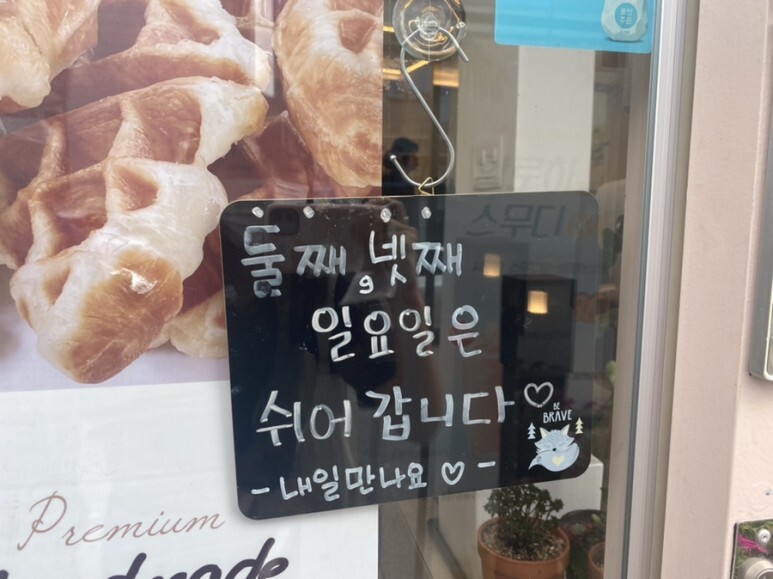 둘째, 넷째
일요일은
쉬어 갑니다♡
BE
BRAVE
- 내일만나요♡ -
Premium